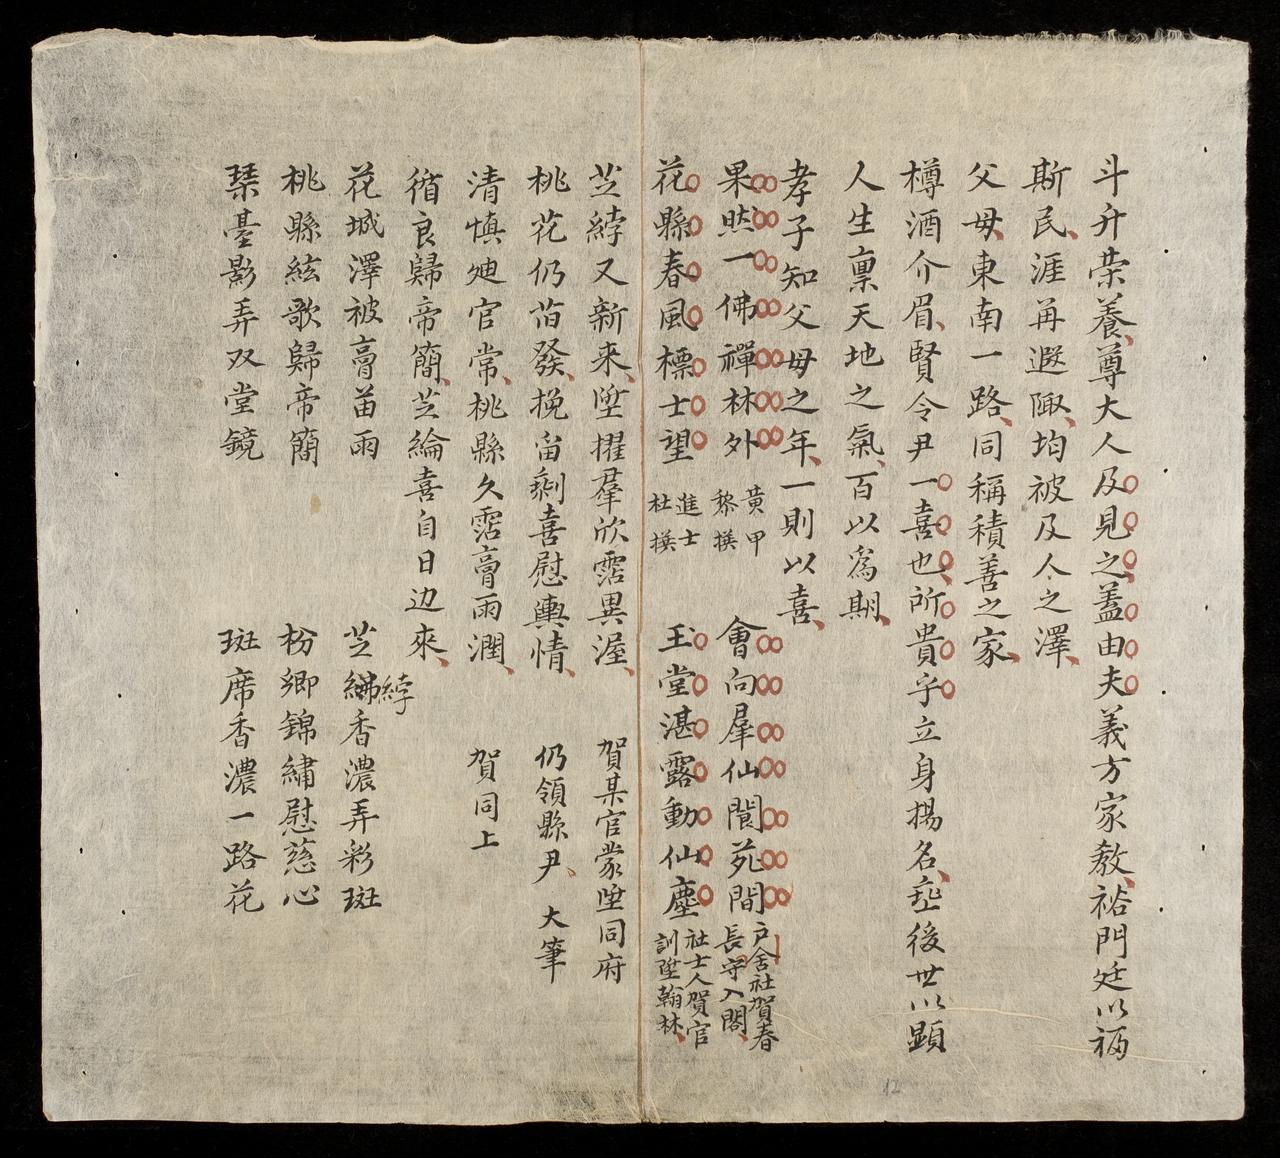 斗升荣養尊大人及見之蓋由夫義方家教裕門廷以福
斯民涯再遐陬均被及人之澤
父母東南一路同稱積善之家
樽酒介眉賢令尹一喜也所貴乎立身揚名垂後世以顕
人生禀天地之氣百以爲期
孝子知父母之年一則以喜
果然一佛禪林外 黄甲黎撰 會向羣仙閬苑間 戸舍社賀春長守入閣
花縣春風標士望 進士杜撰 玉堂湛露動仙塵 社士人賀官訓陞翰林
芝綍又新来陞擢羣欣霑異渥 賀某官蒙陞同府
桃花仍旹發挽畱剩喜慰輿情 仍領縣尹 大筆
清慎廸官常桃縣久霑膏雨潤 賀同上
循良歸帝簡芝綸喜自日边來
花城澤被膏苗雨 芝綍香濃弄彩斑
桃縣絃歌歸帝簡 枌鄉錦繡慰慈心
琹臺影弄双堂鏡 斑席香濃一路花
12